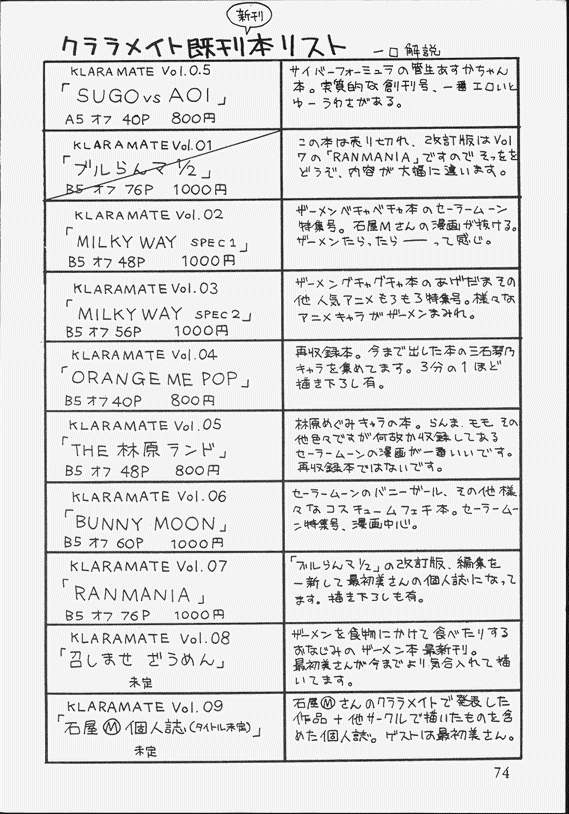 新刊
クララメイト既刊本リスト 一口解説
KLARAMATE Vol.0.5
「SUGO vs AOI」
A5 オフ 40P 800円
サイバーフォーミュラの菅生あすかちゃん
本。実質的な創刊号、一番エロいと
ゆーうわさがある。
KLARAMATE Vol.01
「ブルらんマ1/2」
B5 オフ 76P 1000円
この本は売り切れ、改訂版はVol
7の「RANMANIA」ですのでそっちを
どうぞ、内容が大幅に違います。
KLARAMATE Vol.02
「MILKY WAY SPEC1」
B5 オフ 48P 1000円
ザーメンベチャベチャ本のセーラームーン
特集号。石屋Mさんの漫画が抜ける。
ザーメンたら、たら――って感じ。
KLARAMATE Vol.03
「MILKY WAY SPEC2」
B5 オフ 56P 1000円
ザーメングチャグチャ本のあげだまその
他人気アニメもろもろ特集号。様々な
アニメキャラがザーメンまみれ。
KLARAMATE Vol.04
「ORANGE ME POP」
B5 オフ 40P 800円
再収録本。今まで出した本の三石琴乃
キャラを集めてます。3分の1ほど
描き下ろし有。
KLARAMATE Vol.05
「THE 林原ランド」
B5 オフ 48P 800円
林原めぐみキャラの本。らんま、モモ、その
他色々ですが何故か収録してある
セーラームーンの漫画が一番いいです。
再収録本ではないです。
KLARAMATE Vol.06
「BUNNY MOON」
B5 オフ 60P 1000円
セーラームーンのバニーガール、その他様
々なコスチュームフェチ本。セーラームー
ン特集号、漫画中心。
KLARAMATE Vol.07
「RANMANIA」
B5 オフ 76P 1000円
「ブルらんマ1/2」の改訂版、編集を
一新して最初美さんの個人誌になって
ます。描き下ろしも有。
KLARAMATE Vol.08
「召しませ ざうめん」
未定
ザーメンを食物にかけて食べたりする
おなじみのザーメン本最新刊。
最初美さんが今までより気合入れて描
いてます。
KLARAMATE Vol.09
「石屋Ⓜ個人誌(タイトル未定)」
未定
石屋Ⓜさんのクララメイトで発表した
作品+他サークルで描いたものを含
めた個人誌。ゲストは最初美さん。
74